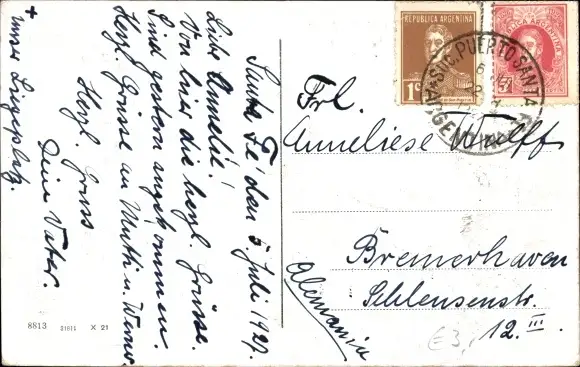 Santa Fé den 5. Juli 1927.
Liebe Annelie!
Von hier die herzl. Grüsse.
Sind gestern angekommen.
Herzl. Grüsse an Mutti u. Werner
Herzl. Gruss
Dein Vater.
+ unser Liegeplatz.
8813 21611 X 21
REPUBLICA ARGENTINA
1c
REPUBLICA ARGENTINA
SUC. PUERTO SANTA FE
ARGENTINA
Frl.
Anneliese Wulff
Bremerhaven
Schleusenstr.
12. III.
Alemania
E3